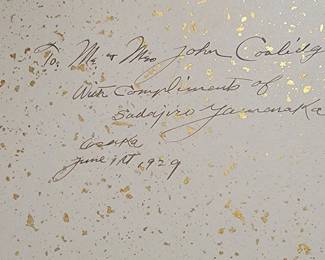 To: Mr & Mrs John Coolidg
With Compliments of
Sadajiro Yamanaka
Osaka
June 1st 1929